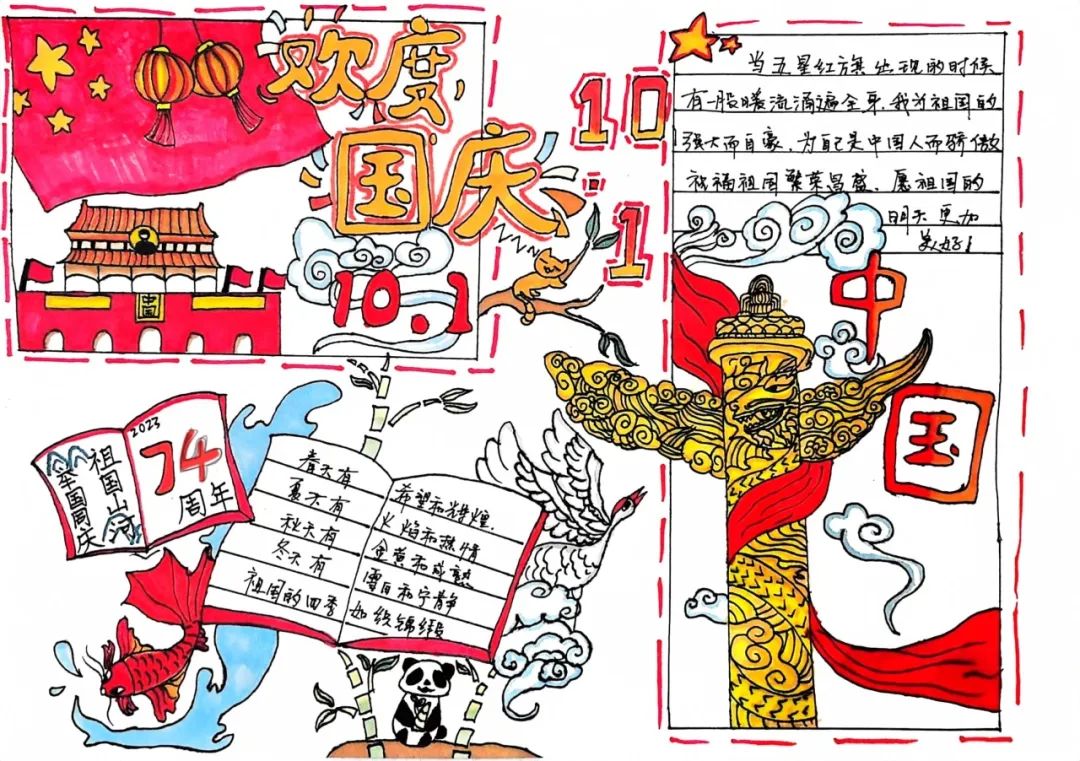 欢度
国庆
10.1
中国
10.1
当五星红旗出现的时候
有一股暖流涌遍全身,我为祖国的
强大而自豪、为自己是中国人而骄傲
祝福祖国繁荣昌盛、愿祖国的
明天更加
美好!
中
国
祖国山河
举国同庆
2023
74
周年
春天有
夏天有
秋天有
冬天有
祖国的四季
希望和辉煌.
火焰和热情
金黄和成熟
雪白和宁静
如锦缎